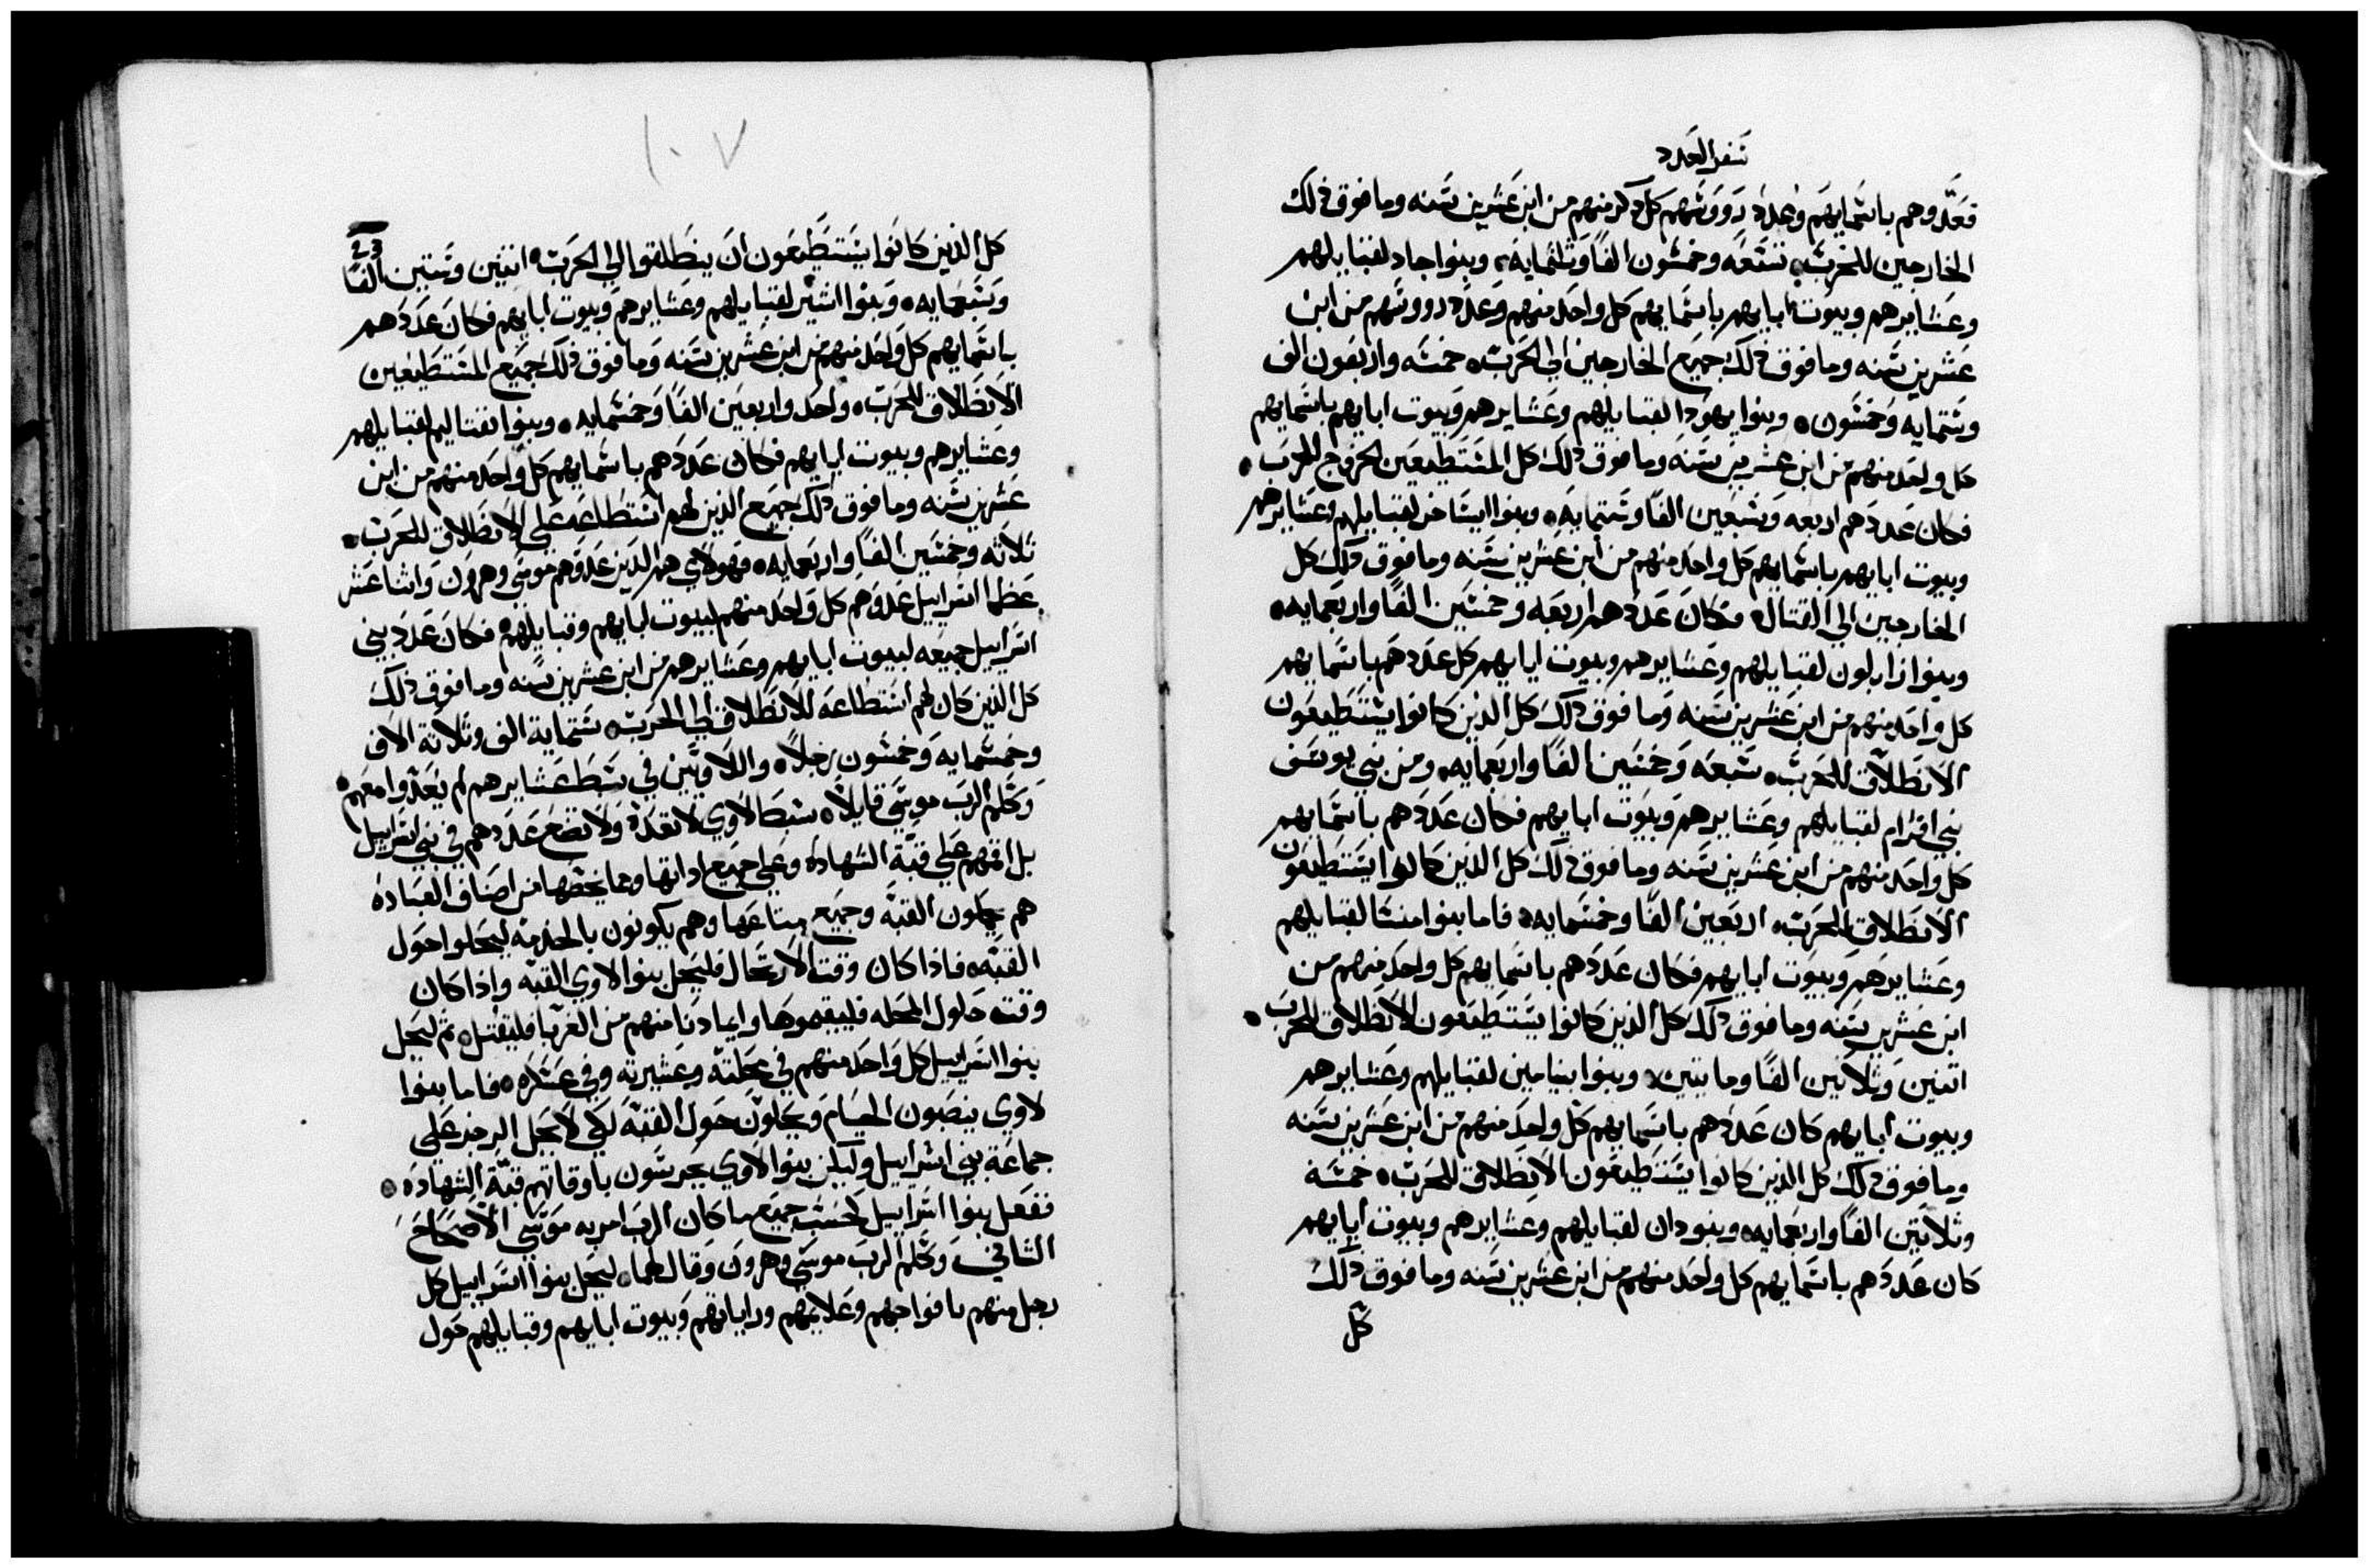 سفر العدد
فعدوهم باسمايهم وعدد رووسهم كل ذكر منهم من ابن عشرين سنه وما فوق ذلك
الخارجين للحرب، تسعه وخمسون الفا وثلثمايه، وبنوا جاد لقبايلهم
وعشايرهم وبيوت ابايهم باسمايهم كل واحد منهم وعدد رووسهم من ابن
عشرين سنه وما فوق ذلك جميع الخارجين الي الحرب، خمسه واربعون الف
وستمايه وخمسون، وبنوا يهودا لقبايلهم وعشايرهم وبيوت ابايهم باسمايهم
كل واحد منهم من ابن عشرين سنه وما فوق ذلك كل المستطيعين الخروج للحرب،
فكان عددهم اربعه وسبعين الفا وستمايه، وبنوا ايساخر لقبايلهم وعشايرهم
وبيوت ابايهم باسمايهم كل واحد منهم من ابن عشرين سنه وما فوق ذلك كل
الخارجين الي القتال، فكان عددهم اربعه وخمسين الفا واربعمايه،
وبنوا زابلون لقبايلهم وعشايرهم وبيوت ابايهم كل عددهم باسمايهم
كل واحد منهم من ابن عشرين سنه وما فوق ذلك كل الذين كانوا يستطيعون
الانطلاق للحرب، سبعه وخمسين الفا واربعمايه، ومن بني يوسف
بني افرام لقبايلهم وعشايرهم وبيوت ابايهم فكان عددهم باسمايهم
كل واحد منهم من ابن عشرين سنه وما فوق ذلك كل الذين كانوا يستطيعون
الانطلاق للحرب، اربعين الفا وخمسمايه، فاما بنوا منسا لقبايلهم
وعشايرهم وبيوت ابايهم فكان عددهم باسمايهم كل واحد منهم من
ابن عشرين سنه وما فوق ذلك كل الذين كانوا يستطيعون الانطلاق للحرب،
اثنين وثلاثين الفا ومايتين، وبنوا بنيامين لقبايلهم وعشايرهم
وبيوت ابايهم كان عددهم باسمايهم كل واحد منهم من ابن عشرين سنه
وما فوق ذلك كل الذين كانوا يستطيعون الانطلاق للحرب، خمسة
وثلاثين الفا واربعمايه، وبنو دان لقبايلهم وعشايرهم وبيوت ابايهم
كان عددهم باسمايهم كل واحد منهم من ابن عشرين سنه وما فوق ذلك
كل
١٠٧
كل الذين كانوا يستطيعون ان ينطلقوا الي الحرب، اثنين وستين الفا
وسبعمايه، وبنوا اشير لقبايلهم وعشايرهم وبيوت ابايهم فكان عددهم
باسمايهم كل واحد منهم من ابن عشرين سنه وما فوق ذلك جميع المستطيعين
الانطلاق للحرب، واحد واربعين الفا وخمسمايه، وبنوا نفتاليم لقبايلهم
وعشايرهم وبيوت ابايهم فكان عددهم باسمايهم كل واحد منهم من ابن
عشرين سنه وما فوق ذلك جميع الذين لهم استطاعه علي الانطلاق للحرب،
ثلاثه وخمسين الفا واربعمايه، فهولاي هم الذين عدوهم موسي وهرون واثنا عشر
عظما اسراييل عدوهم كل واحد منهم لبيوت ابايهم وقبايلهم، فكان عدد بني
اسراييل جميعه لبيوت ابايهم وعشايرهم من ابن عشرين سنه وما فوق ذلك
كل الذين كان لهم استطاعه للانطلاق الي الحرب، ستماية الف وثلاثة الاف
وخمسمايه وخمسون رجلا، واللاويين في سبط عشايرهم لم يعدوا معهم،
وكلم الرب موسي قايلا، سبط لاوي لا تعده ولا تضع عددهم في بني اسراييل
بل اقمهم علي قبة الشهاده وعلي جميع اداتها وما يخصها من اصناف العباده
هم يحملون القبه وجميع متاعها وهم يكونون بالخدمه ليحلوا حول
القبه، فاذا كان وقت الارتحال فليحمل بنوا لاوي القبه واذا كان
وقت حلول المحله فليقيموها وايما دنا منهم من الغربا فليقتل، ثم ليحل
بنوا اسراييل كل واحد منهم في محلته وعشيرته وفي عسكره، فاما بنوا
لاوي ينصبون الخيام ويحلون حول القبه لكي لا يحل الرجز علي
جماعة بني اسراييل وليكن بنوا لاوي يحرسون باوقاتهم قبة الشهاده،
ففعل بنوا اسراييل كحسب جميع ما كان الرب امر به موسي الاصحاح
الثاني وكلم الرب موسي وهرون وقال لهما، ليحل بنوا اسراييل كل
رجل منهم بافواجهم وعلايمهم وراياتهم وبيوت ابايهم وقبايلهم حول